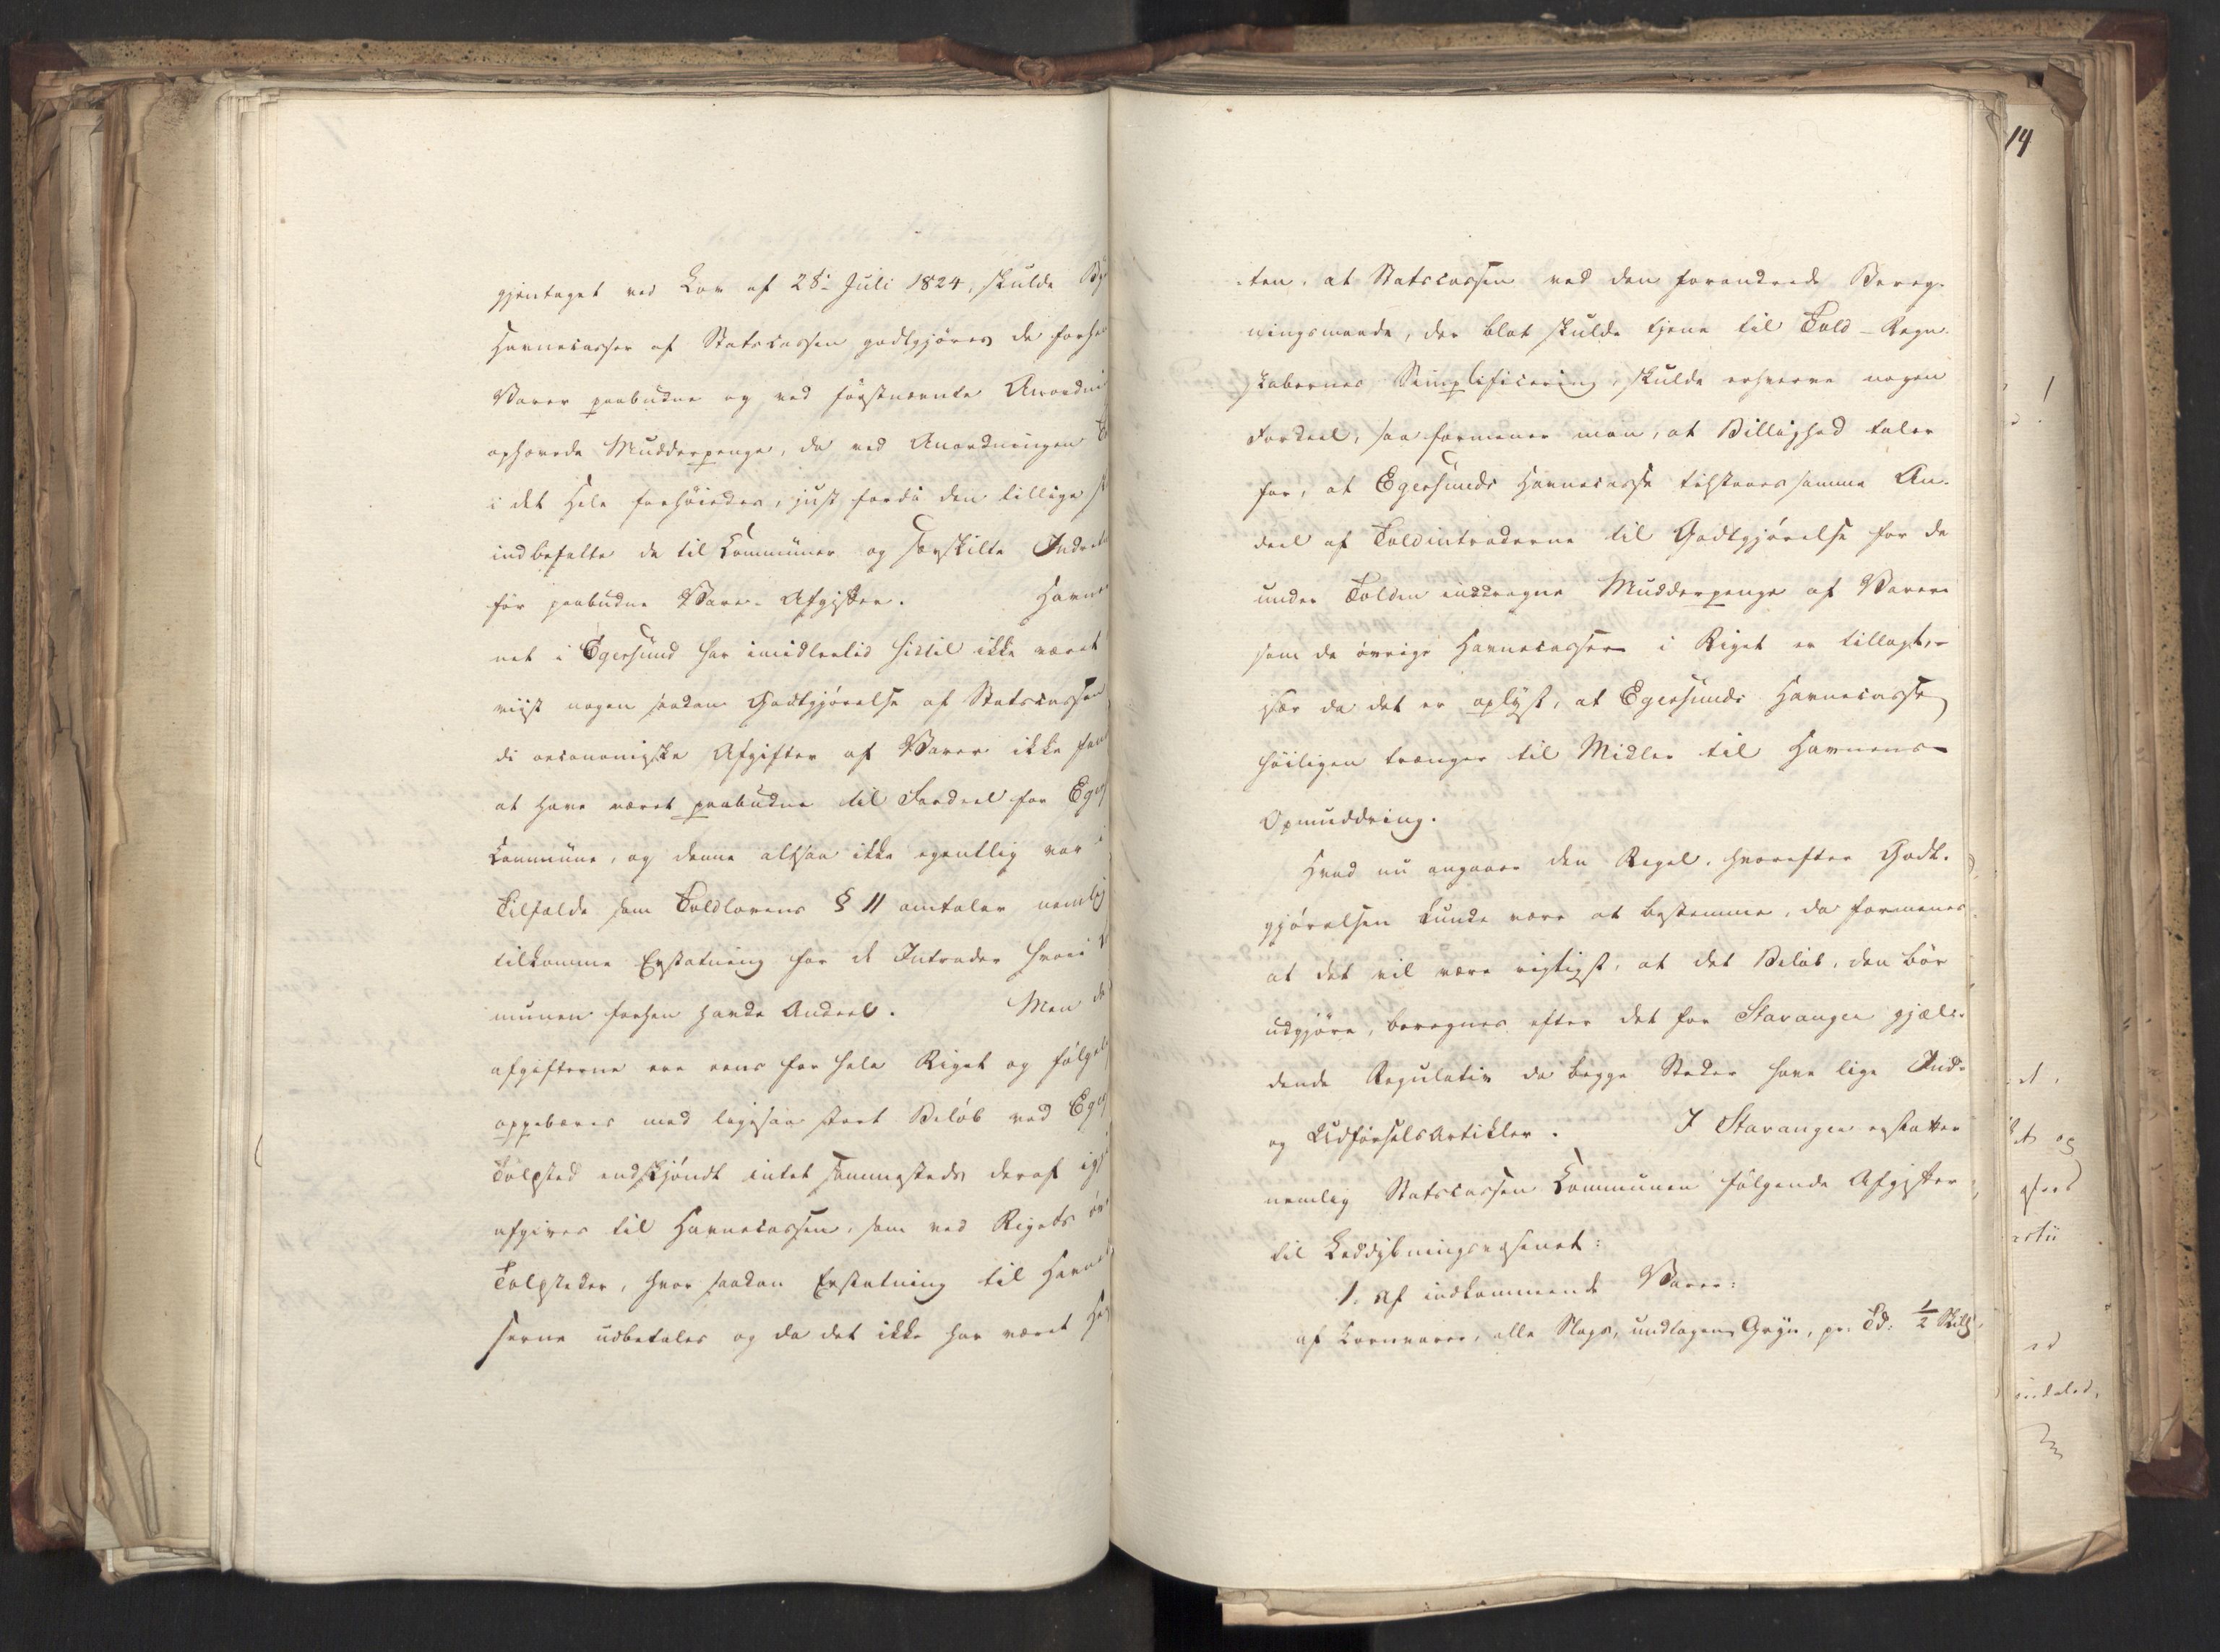 gjentaget ved Lov af 28de Juli 1824, skulde By
Havnecasser af Statscassen godtgjøres de forhen
Varer paabudne og ved førstnævnte Anordni
ophævede Mudderpenge, da ved Anordningen To
i det Hele forhøiedes, just fordi den tillige sk
indbefatte de til Communer og særskilte Indret
før paabudne Vare-Afgifter. Havne
net i Egersund har imidlertid hidtil ikke været
viist nogen saadan Godtgjørelse af Statscassen
di oeconomiske Afgifter af Varer ikke fan
at have været paabudne til Fordeel for Egers
Commune, og denne altsaa ikke egentlig var i
Tilfælde som Toldlovens § 11 omtaler nemlig
tilkomme Erstatning for de Intrader hvori
munen forhen havde Andeel. Men de
afgifterne ere eens for hele Riget og følgel
oppebæres med ligesaa stort Beløb ved Egers
Toldsted endskjøndt intet sammesteds deraf igj
afgives til Havnecassen, som ved Rigets øv
Toldsteder, hvor saadan Erstatning til Havne
serne udbetales og da det ikke har været He
ten, at Statscassen ved den forandrede Bereg-
ningsmaade, der blot skulde tjene til Told-Regn-
skabernes Simplificering, skulde erhverve nogen
Fordeel, saa formener man, at Billighed taler
for, at Egersunds Havnecasse tilstaaes samme An-
deel af Toldintraderne til Godtgjørelse for de
under Tolden inddragne Mudderpenge af Varer
som de øvrige Havnecasser i Riget er tillagt,
især da det er oplyst, at Egersunds Havnecasse
høiligen trænger til Midler til Havnens
Opmuddring.
Hvad nu angaaer den Regel, hvorefter Godt-
gjørelsen kunde være at bestemme, da formenes
at det vil være rigtigst, at det Beløb, den bør
udgjøre, beregnes efter det for Stavanger gjæl-
dende Regulativ da begge Steder have lige Ind-
og Udførselsartikler. I Stavanger erstatter
nemlig Statscassen Communen følgende Afgifter
til Loddybningsvæsenet:
1. Af indkommende Varer:
af Kornvarer, alle Slags, undtagen Gryn, pr. Td: 1/2 Skill
14